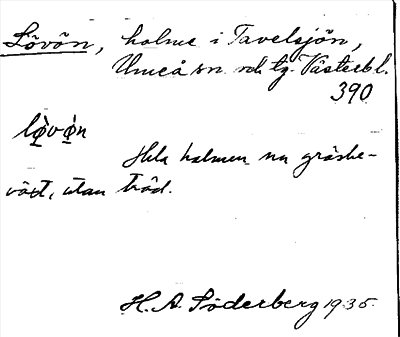 Lövön, holme i Tavelsjön,
Umeå sn. och tg. Västerbl.
390
lȯ̖vȯ̖n
Hela holmen nu gräsbe-
växt, utan träd.
H. A. Söderberg 1935.